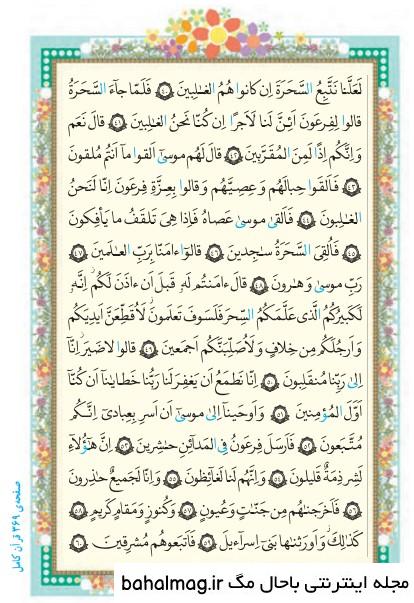 لَعَلَّنا نَتَّبِعُ السَّحَرَةَ اِن كانوا هُمُ الغالِبينَ ﴿٤٠﴾ فَلَمّا جاءَ السَّحَرَةُ
قالوا لِفِرعَونَ اَئِنَّ لَنا لَاَجرًا اِن كُنّا نَحنُ الغالِبينَ ﴿٤١﴾ قالَ نَعَم
وَاِنَّكُم اِذًا لَمِنَ المُقَرَّبينَ ﴿٤٢﴾ قالَ لَهُم موسىٰ اَلقوا ما اَنتُم مُلقونَ
﴿٤٣﴾ فَاَلقَوا حِبالَهُم وَعِصِيَّهُم وَقالوا بِعِزَّةِ فِرعَونَ اِنّا لَنَحنُ
الغالِبونَ ﴿٤٤﴾ فَاَلقىٰ موسىٰ عَصاهُ فَاِذا هِىَ تَلقَفُ ما يَأفِكونَ
﴿٤٥﴾ فَاُلقِىَ السَّحَرَةُ ساجِدينَ ﴿٤٦﴾ قالوا ءامَنّا بِرَبِّ العالَمينَ ﴿٤٧﴾
رَبِّ موسىٰ وَهارونَ ﴿٤٨﴾ قالَ ءامَنتُم لَهو قَبلَ اَن ءاذَنَ لَكُم اِنَّهو
لَكَبيرُكُمُ الَّذى عَلَّمَكُمُ السِّحرَ فَلَسَوفَ تَعلَمونَ لَاُقَطِّعَنَّ اَيدِيَكُم
وَاَرجُلَكُم مِن خِلافٍ وَلَاُصَلِّبَنَّكُم اَجمَعينَ ﴿٤٩﴾ قالوا لا ضَيرَ اِنّا
اِلىٰ رَبِّنا مُنقَلِبونَ ﴿٥٠﴾ اِنّا نَطمَعُ اَن يَغفِرَ لَنا رَبُّنا خَطايانا اَن كُنّا
اَوَّلَ المُؤمِنينَ ﴿٥١﴾ وَاَوحَينا اِلىٰ موسىٰ اَن اَسرِ بِعِبادى اِنَّكُم
مُتَّبَعونَ ﴿٥٢﴾ فَاَرسَلَ فِرعَونُ فِى المَدائِنِ حاشِرينَ ﴿٥٣﴾ اِنَّ هٰؤُلاءِ
لَشِرذِمَةٌ قَليلونَ ﴿٥٤﴾ وَاِنَّهُم لَنا لَغائِظونَ ﴿٥٥﴾ وَاِنّا لَجَميعٌ حاذِرونَ
﴿٥٦﴾ فَاَخرَجناهُم مِن جَنّاتٍ وَعُيونٍ ﴿٥٧﴾ وَكُنوزٍ وَمَقامٍ كَريمٍ ﴿٥٨﴾
كَذٰلِكَ وَاَورَثناها بَنى اِسراءيلَ ﴿٥٩﴾ فَاَتبَعوهُم مُشرِقينَ ﴿٦٠﴾
صفحه‌ی ۳۶۹ قرآن کامل
مجله اینترنتی باحال مگ bahalmag.ir